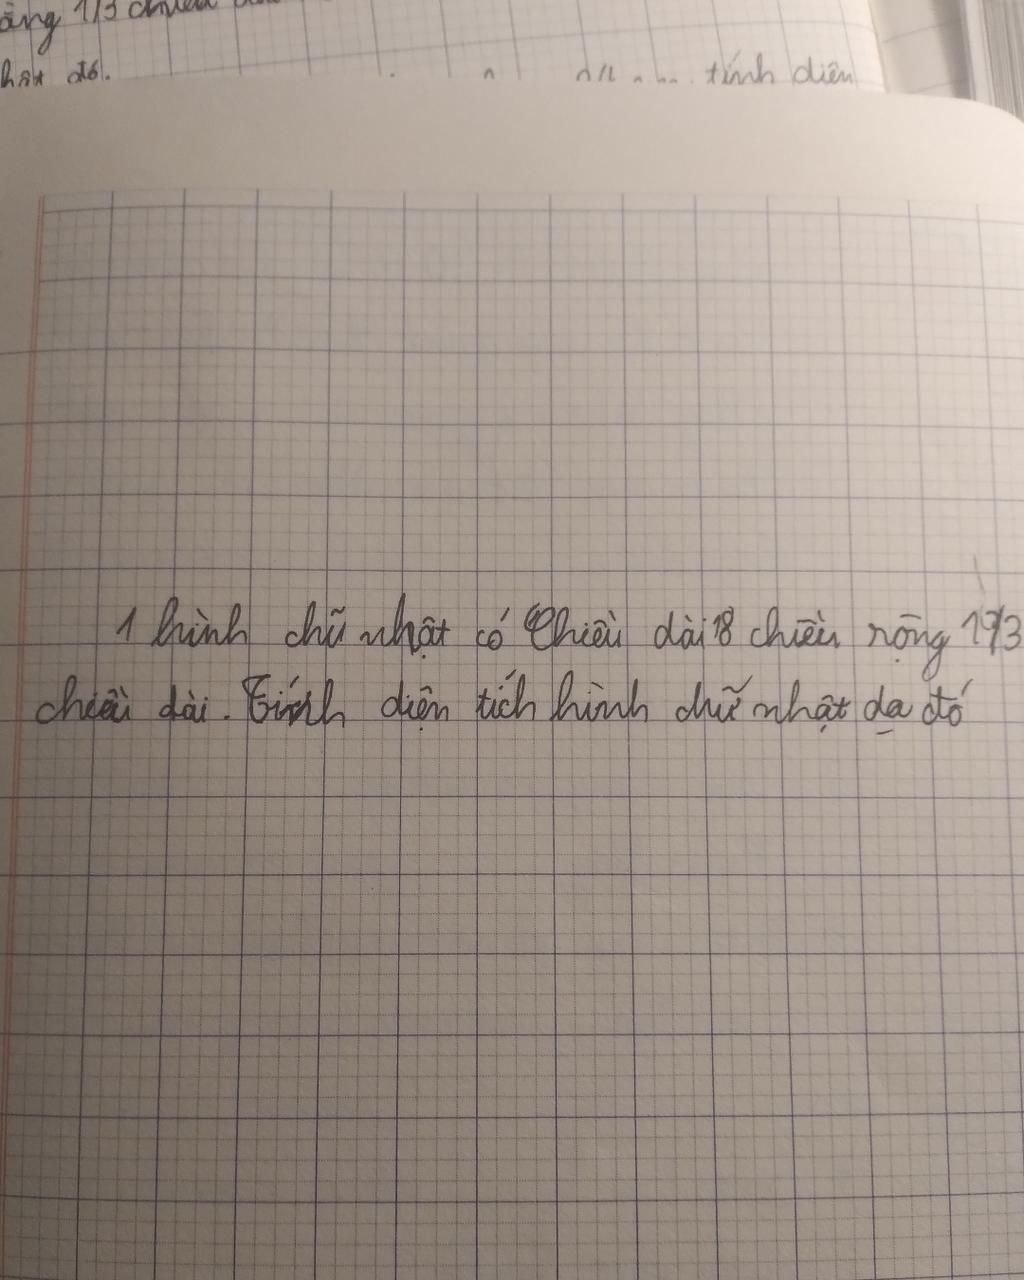 ằng 1/3 chiều
đó.
tính diện
1 hình chữ nhật có chiều dài 18 chiều rộng 1/3
chiều dài. Tính diện tích hình chữ nhật da đó